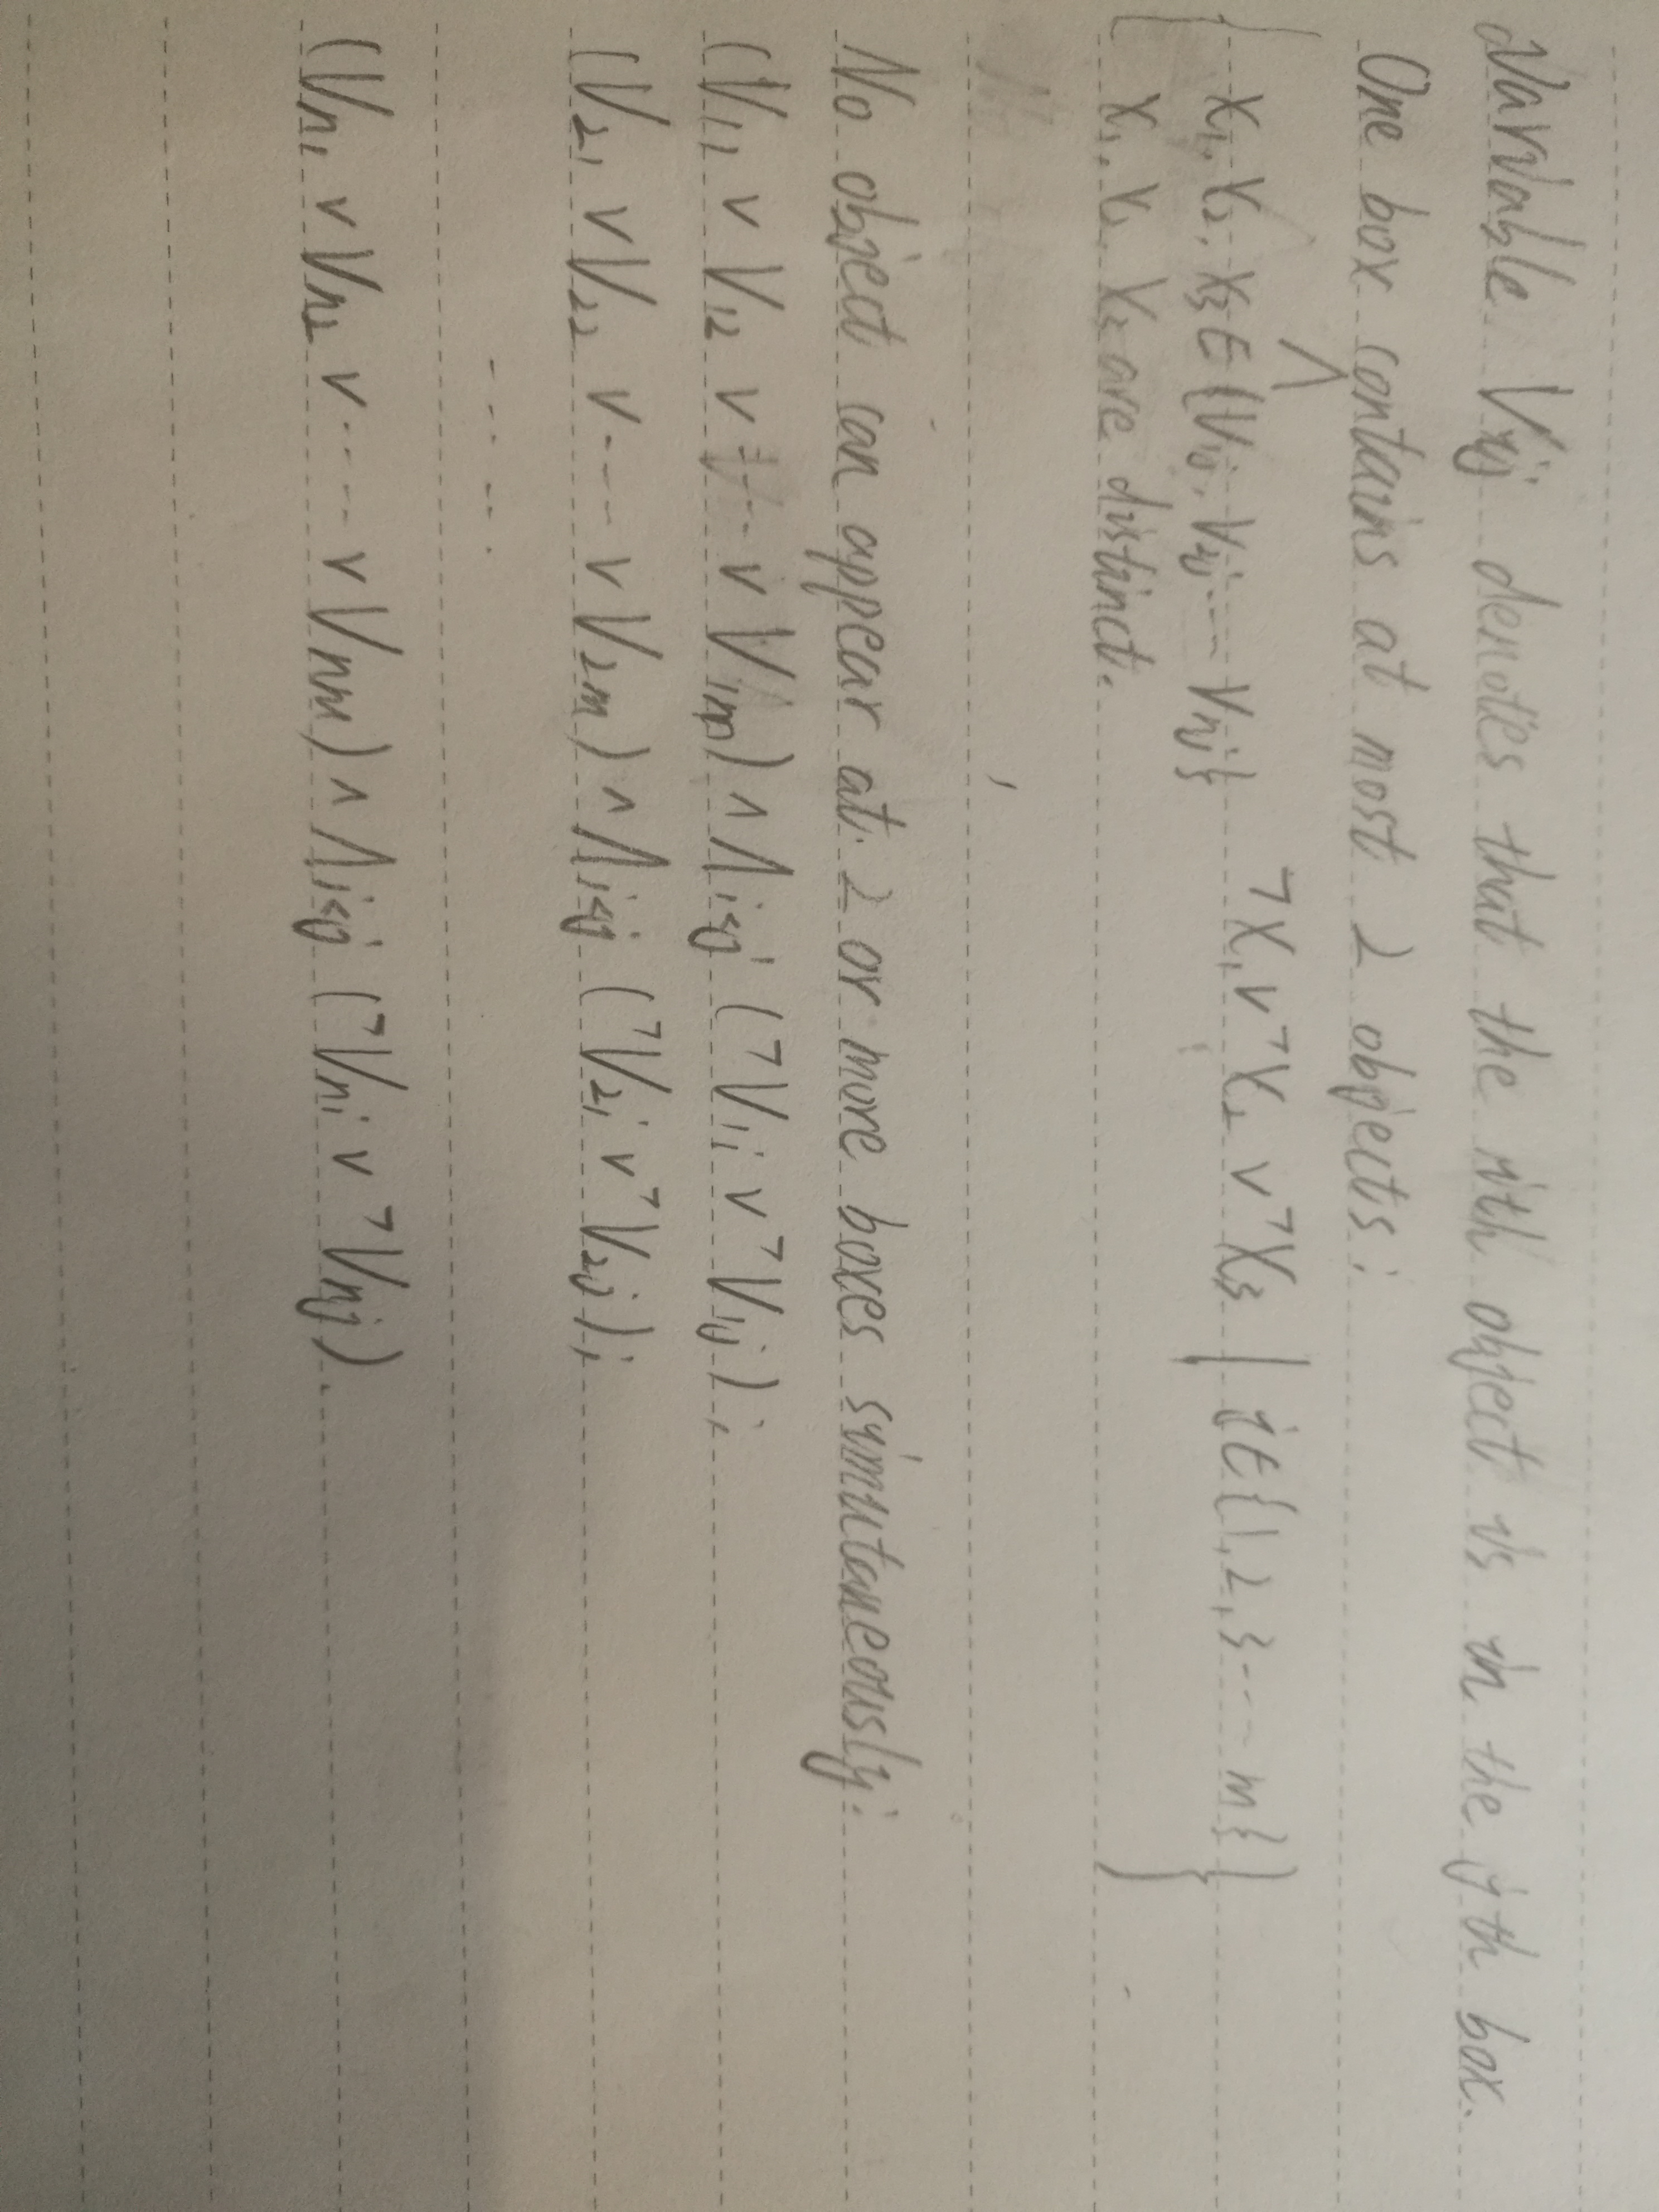 Variable Vij denotes that the ith object is in the jth box.
One box contains at most 2 objects:
{ ∧ X1, X2, X3 ∈ {V1j, V2j ---- Vnj} ¬X1 ∨ ¬X2 ∨ ¬X3 | j∈{1,2,3---- m} }
X1, X2, X3 are distinct.
No object can appear at 2 or more boxes simutaneously:
(V11 ∨ V12 ∨ ---- ∨ V1m) ∧ ∧i<j (¬V1i ∨ ¬V1j);
(V21 ∨ V22 ∨ ---- ∨ V2m) ∧ ∧i<j (¬V2i ∨ ¬V2j);
------
(Vn1 ∨ Vn2 ∨ ----- ∨ Vnm) ∧ ∧i<j (¬Vni ∨ ¬Vnj).